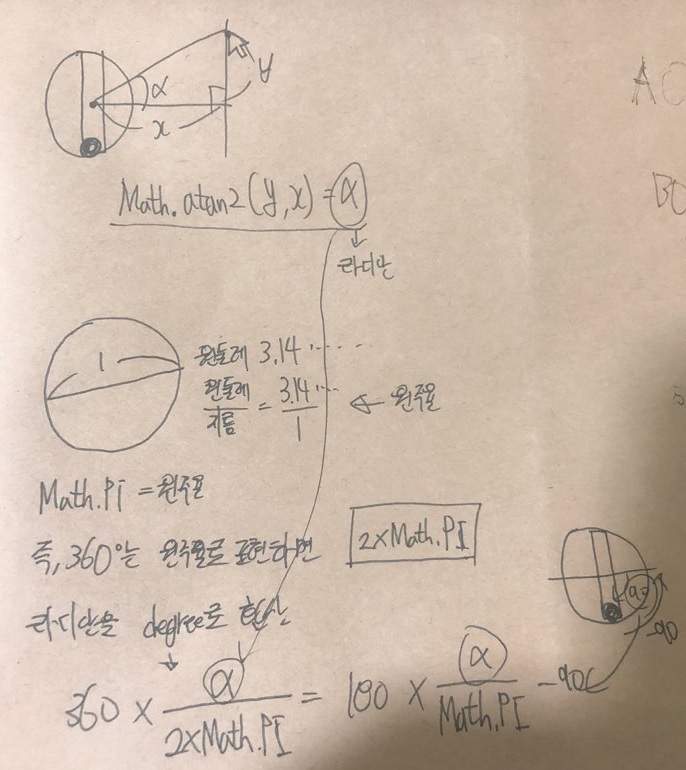 α
x
y
Math.atan2(y,x) = α
↓
라디안
1
원둘레 3.14.....
원둘레/지름 = 3.14.../1 ← 원주율
Math.PI = 원주율
즉, 360°는 원주율로 표현하면 2×Math.PI
라디안을 degree로 환산
360 × α/2×Math.PI = 180 × α/Math.PI -90
90
-90
AC
BC